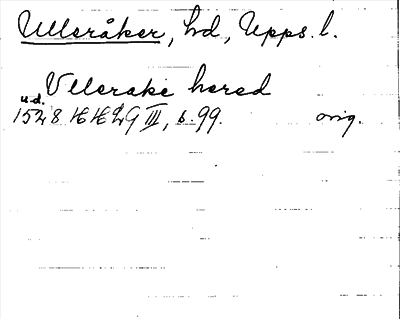 Ulleråker, hd, Upps. l.
Vllerake hered
u.d.
1528 HHLG III, s. 99. orig.